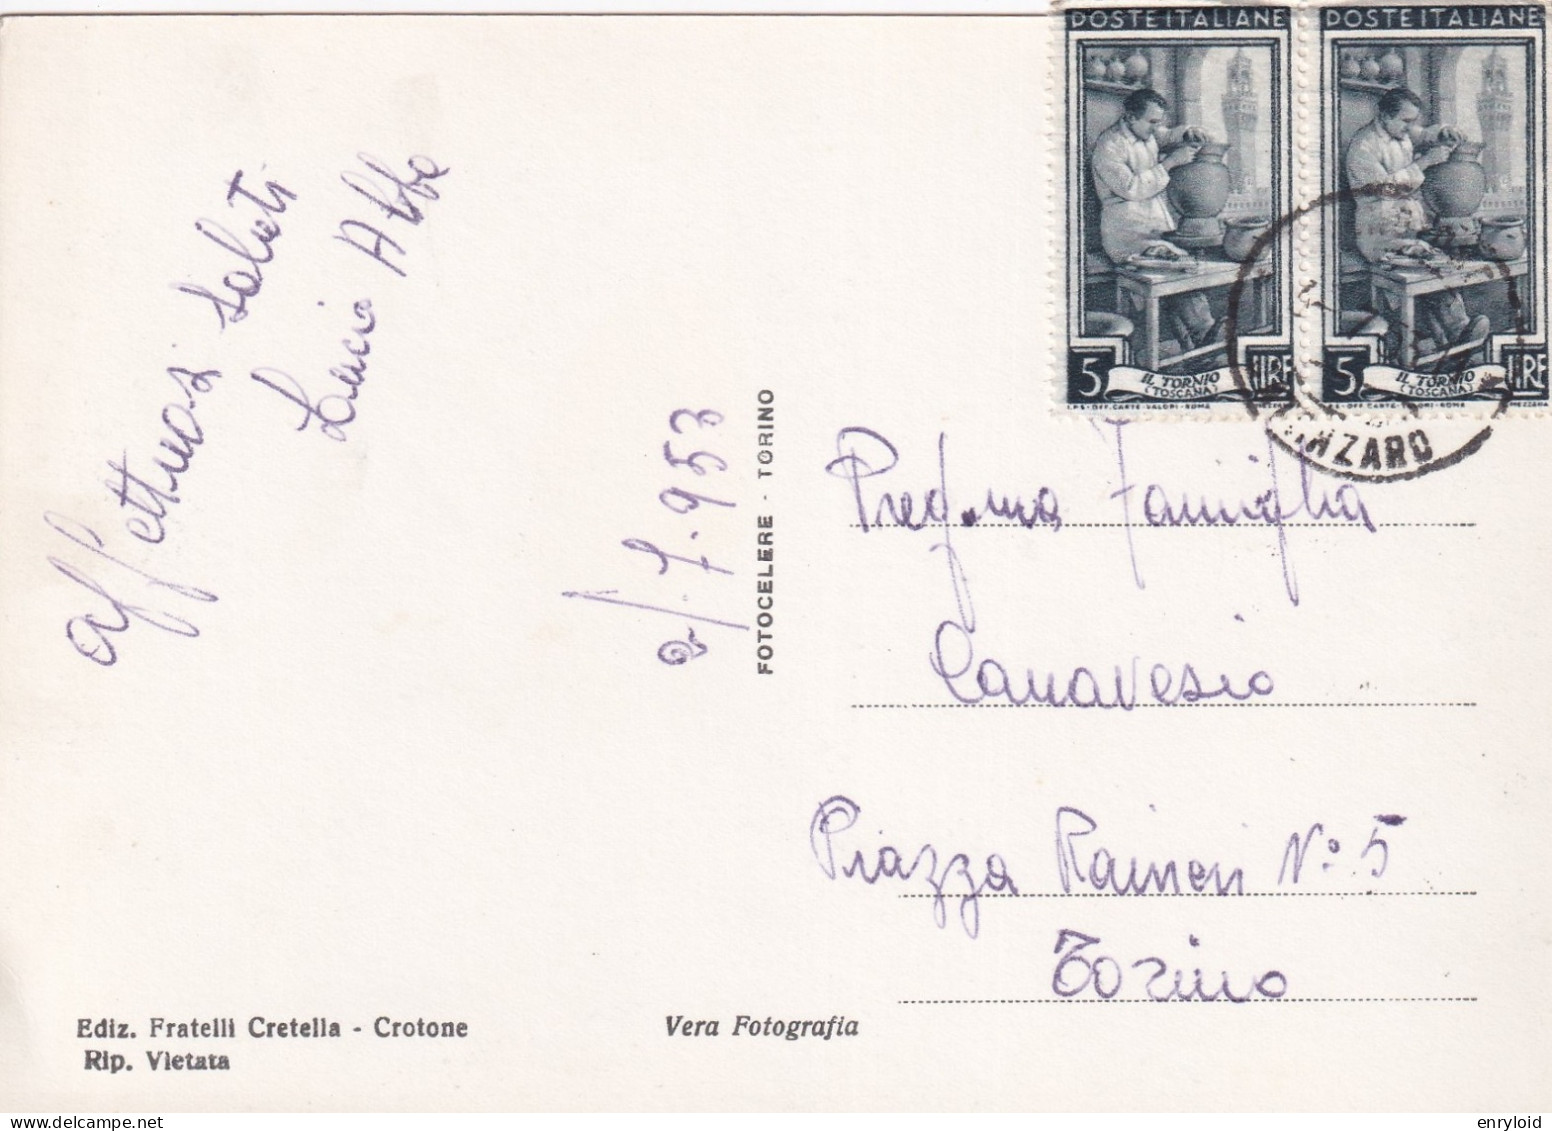 POSTE ITALIANE
POSTE ITALIANE
5 IL TORNIO LIRE
(TOSCANA)
I.P.S.-OFF. CARTE-VALORI-ROMA MEZZANA
5 IL TORNIO LIRE
(TOSCANA)
affettuosi saluti
Lucia Abbo
2/7.953
FOTOCELERE - TORINO
Preg.ma Famiglia
Canavesio
Piazza Raineri N° 5
Torino
Ediz. Fratelli Cretella - Crotone
Rip. Vietata
Vera Fotografia
enryloid